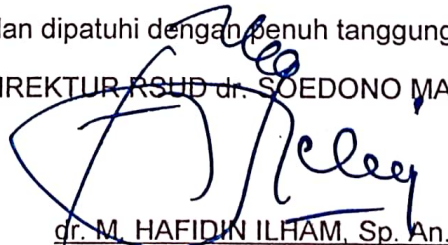 dan dipatuhi dengan penuh tanggung
IREKTUR RSUD dr. SOEDONO MA
dr. M. HAFIDIN ILHAM, Sp. An.